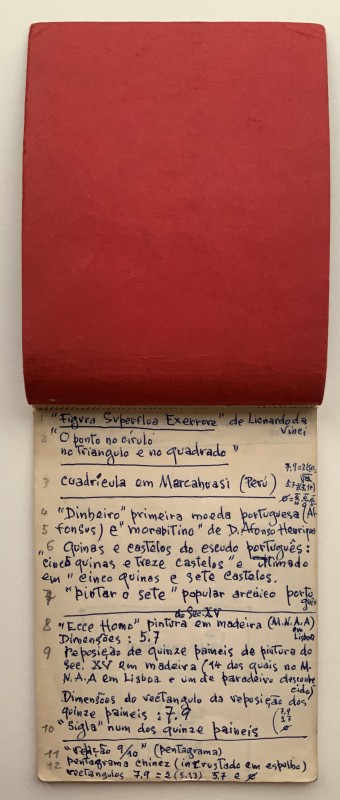 1 "Figura Superflua Exerrore" de Lionardo da Vinci
2 "O ponto no círulo
no triangulo e no quadrado"
3 cuadrícula em Marcahuasi (Perú)
4 "Dinheiro" primeira moeda portuguesa (Al-
5 fonsus) e "morabitino" de D. Afonso Henriques
6 quinas e castelos do escudo português:
"cinco quinas e treze castelos" e ultimado
em "cinco quinas e sete castelos.
7 "pintar o sete" popular arcáico português
do Sec. XV
8 "Ecce Homo" pintura em madeira (M.N.A.A) em Lisboa
Dimensões : 5.7
9 Reposição de quinze paineis de pintura do
sec. XV em madeira (14 dos quais no M.
N.A.A em Lisboa e um de paradeiro desconhecido)
Dimensões do rectangulo da reposição dos
quinze paineis : 7.9
(7,9
5,7
ø)
10 "Sigla" num dos quinze paineis
11 "relação 9/10" (pentagrama)
12 pentagrama chinez (incrustado em espelho)
rectangulos 7.9 = 2(5.13) 5.7 e ø